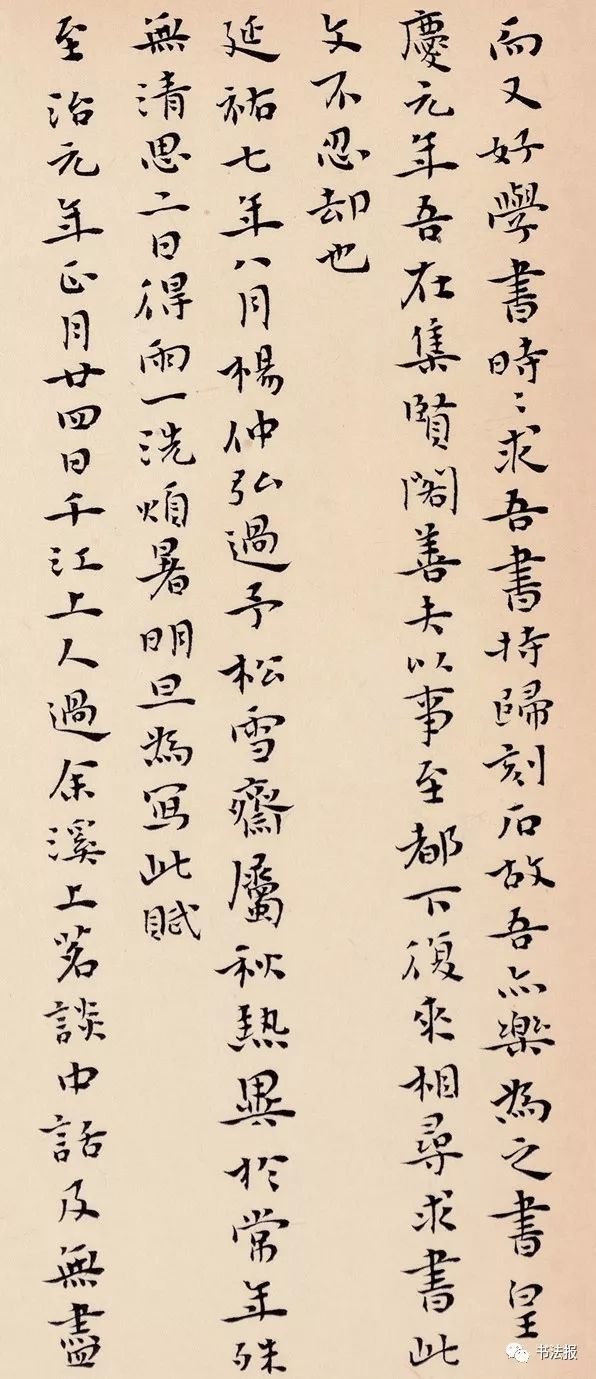 而又好學書時〻求吾書持歸刻石故吾亦樂為之書皇
慶元年吾在集賢閻善夫以事至都下復來相尋求書此
文不忍却也
延祐七年八月楊仲弘過予松雪齋屬秋熱異於常年殊
無清思二日得雨一洗煩暑明旦為寫此賦
至治元年正月廿四日千江上人過余溪上茗談中話及無盡
书法报